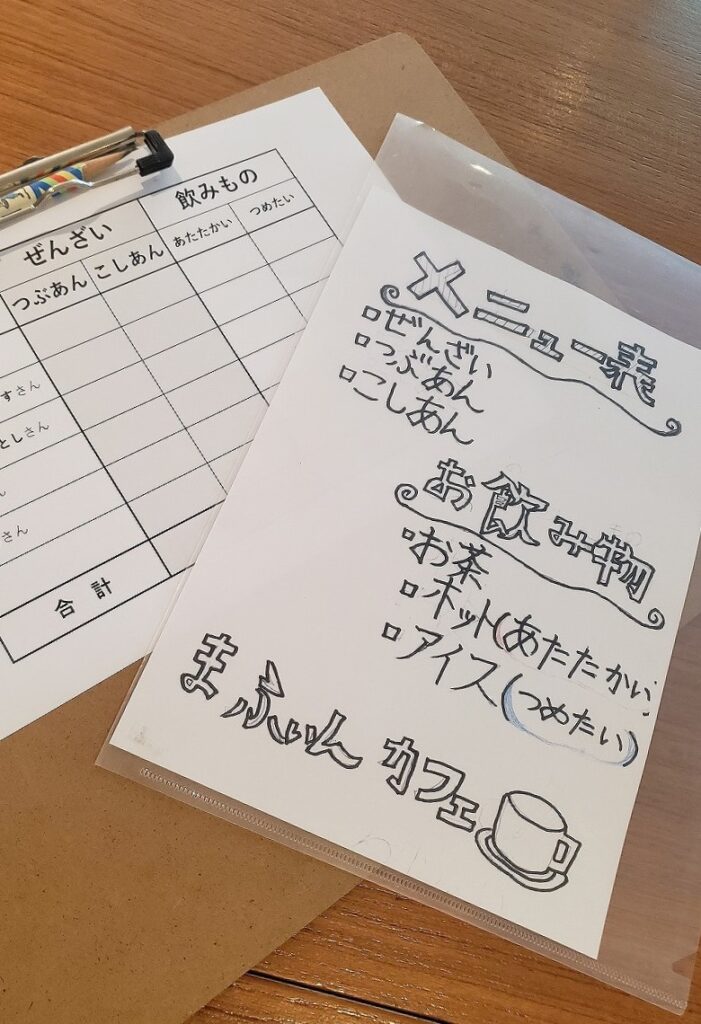 ぜんざい 飲みもの
つぶあん こしあん あたたかい つめたい
すさん
としさん
ん
さん
合計
メニュー表
ぜんざい
つぶあん
こしあん
お飲み物
お茶
ホット(あたたかい
アイス(つめたい)
まふぃん カフェ